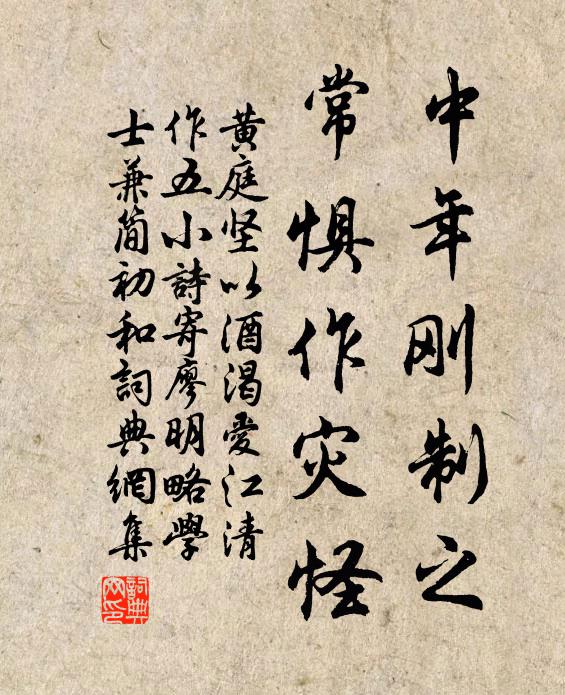 中年刚制之
常惧作灾怪
黄庭坚以酒渴爱江清
作五小詩寄廖明略學
士兼简初和詞典網集
詞典
网印